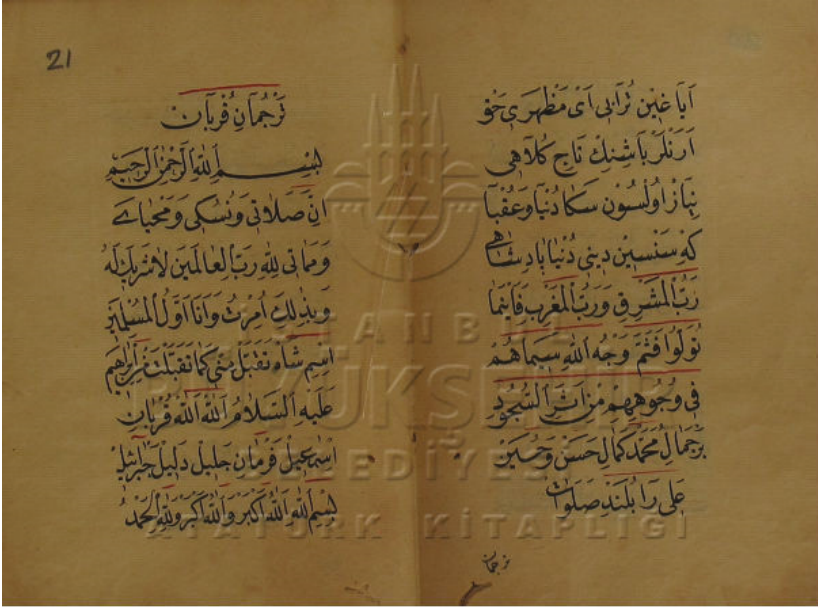 آيَا غَيْن تُرَابِى اَىْ مَظْهَرِى حَقْ
اَرَنْلَرْ بَاشِنِكْ تَاجِ كُلَاهِى
نِيَازْ اُولْسُونْ سَكَا دُنْيَا وَعُقْبَا
كِهْ سَنْسِينْ دِينِى دُنْيَا پَادِشَاهِى
رَبُّ الْمَشْرِقِ وَرَبُّ الْمَغْرِبِ فَاَيْنَمَا
تُوَلُّوا فَثَمَّ وَجْهُ اللّٰهِ سِيمَاهُمْ
فِى وُجُوهِهِمْ مِنْ اَثَرِ السُّجُودِ
بَرْجَمَالِ مُحَمَّدْ كَمَالِ حَسَنْ وَحُسَيْنْ
عَلِى رَا بُلَنْدِ صَلَوَاتْ
ترجمان
21
تَرْجُمَانِ قُرْبَانْ
بِسْمِ اللّٰهِ الرَّحْمٰنِ الرَّحِيمِ
اِنَّ صَلَاتِى وَنُسُكِى وَمَحْيَاىَ
وَمَمَاتِى لِلّٰهِ رَبِّ الْعَالَمِينَ لَا شَرِيكَ لَهُ
وَبِذٰلِكَ اُمِرْتُ وَاَنَا اَوَّلُ الْمُسْلِمِينَ
اِسْمِ شَاهْ تَقَبَّلْ مِنِّى كَمَا تَقَبَّلْتَ مِنْ اِبْرَاهِيمَ
عَلَيْهِ السَّلَامُ اَللّٰهْ اَللّٰهْ قُرْبَانِ
اِسْمٰعِيلْ فَرْمَانِ جَلِيلْ دَلِيلِ جِبْرَائِيلْ
بِسْمِ اللّٰهِ اَللّٰهُ اَكْبَرْ وَاللّٰهُ اَكْبَرْ وَلِلّٰهِ الْحَمْدُ
İSTANBUL
BÜYÜKŞEHİR
BELEDİYESİ
ATATÜRK KİTAPLIĞI